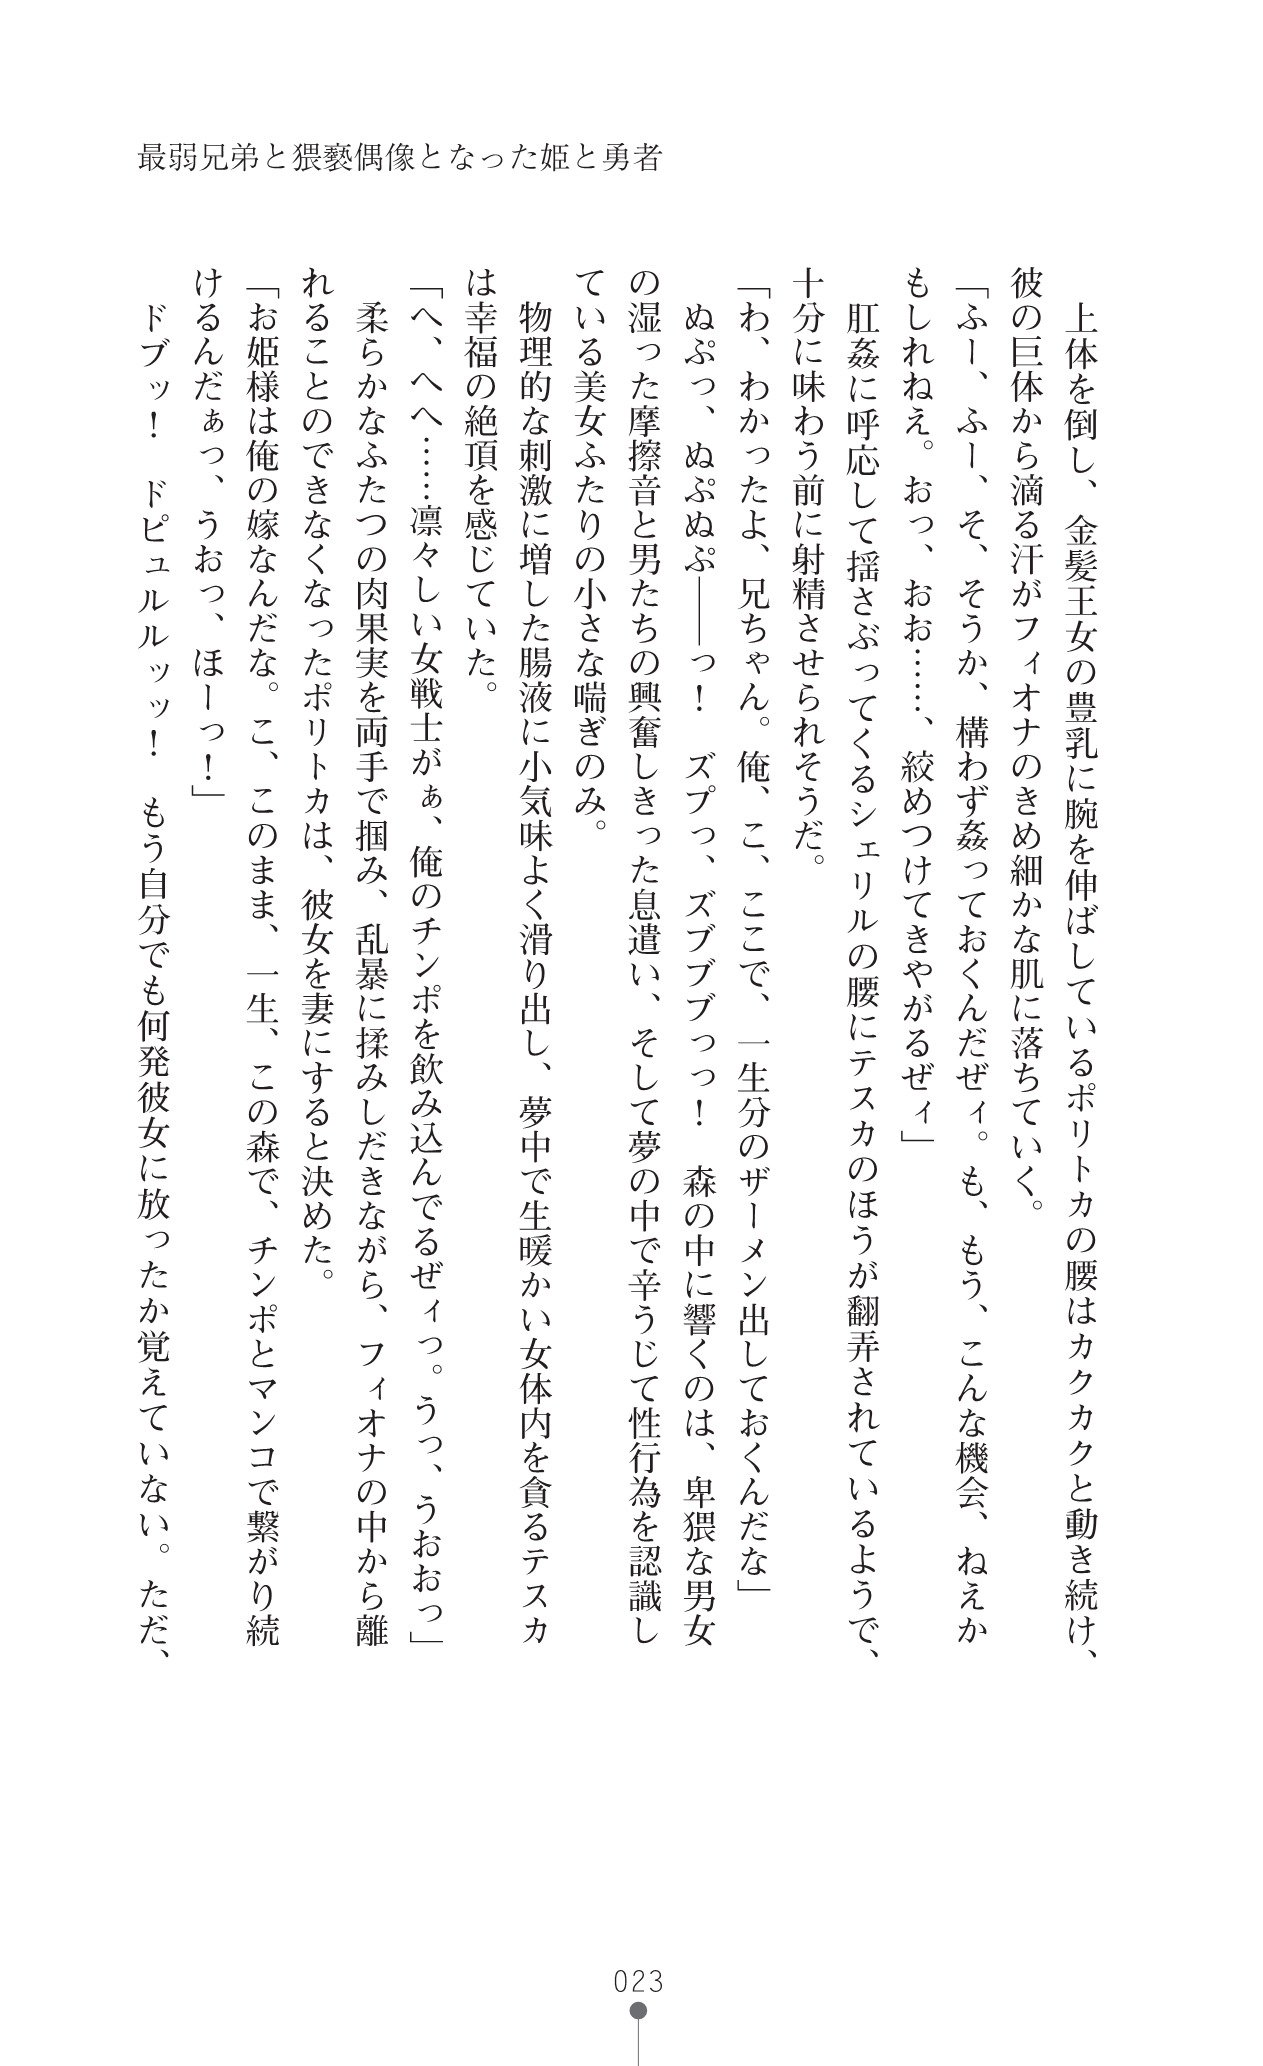 最弱兄弟と猥褻偶像となった姫と勇者
上体を倒し、金髪王女の豊乳に腕を伸ばしているポリトカの腰はカクカクと動き続け、
彼の巨体から滴る汗がフィオナのきめ細かな肌に落ちていく。
「ふー、ふー、そ、そうか、構わず姦っておくんだぜィ。も、もう、こんな機会、ねえか
もしれねえ。おっ、おお……、絞めつけてきやがるぜィ」
肛姦に呼応して揺さぶってくるシェリルの腰にテスカのほうが翻弄されているようで、
十分に味わう前に射精させられそうだ。
「わ、わかったよ、兄ちゃん。俺、こ、ここで、一生分のザーメン出しておくんだな」
ぬぷっ、ぬぷぬぷ――っ！　ズプっ、ズブブブっっ！　森の中に響くのは、卑猥な男女
の湿った摩擦音と男たちの興奮しきった息遣い、そして夢の中で辛うじて性行為を認識し
ている美女ふたりの小さな喘ぎのみ。
物理的な刺激に増した腸液に小気味よく滑り出し、夢中で生暖かい女体内を貪るテスカ
は幸福の絶頂を感じていた。
「へ、へへ……凛々しい女戦士がぁ、俺のチンポを飲み込んでるぜィっ。うっ、うおおっ」
柔らかなふたつの肉果実を両手で掴み、乱暴に揉みしだきながら、フィオナの中から離
れることのできなくなったポリトカは、彼女を妻にすると決めた。
「お姫様は俺の嫁なんだな。こ、このまま、一生、この森で、チンポとマンコで繋がり続
けるんだぁっ、うおっ、ほーっ！」
ドブッ！　ドピュルルッッ！　もう自分でも何発彼女に放ったか覚えていない。ただ、
023